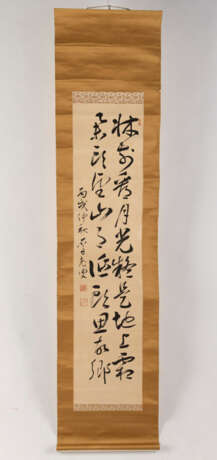 牀前看月光疑是地上霜
舉頭望山月低頭思故鄉
丙戌仲秋